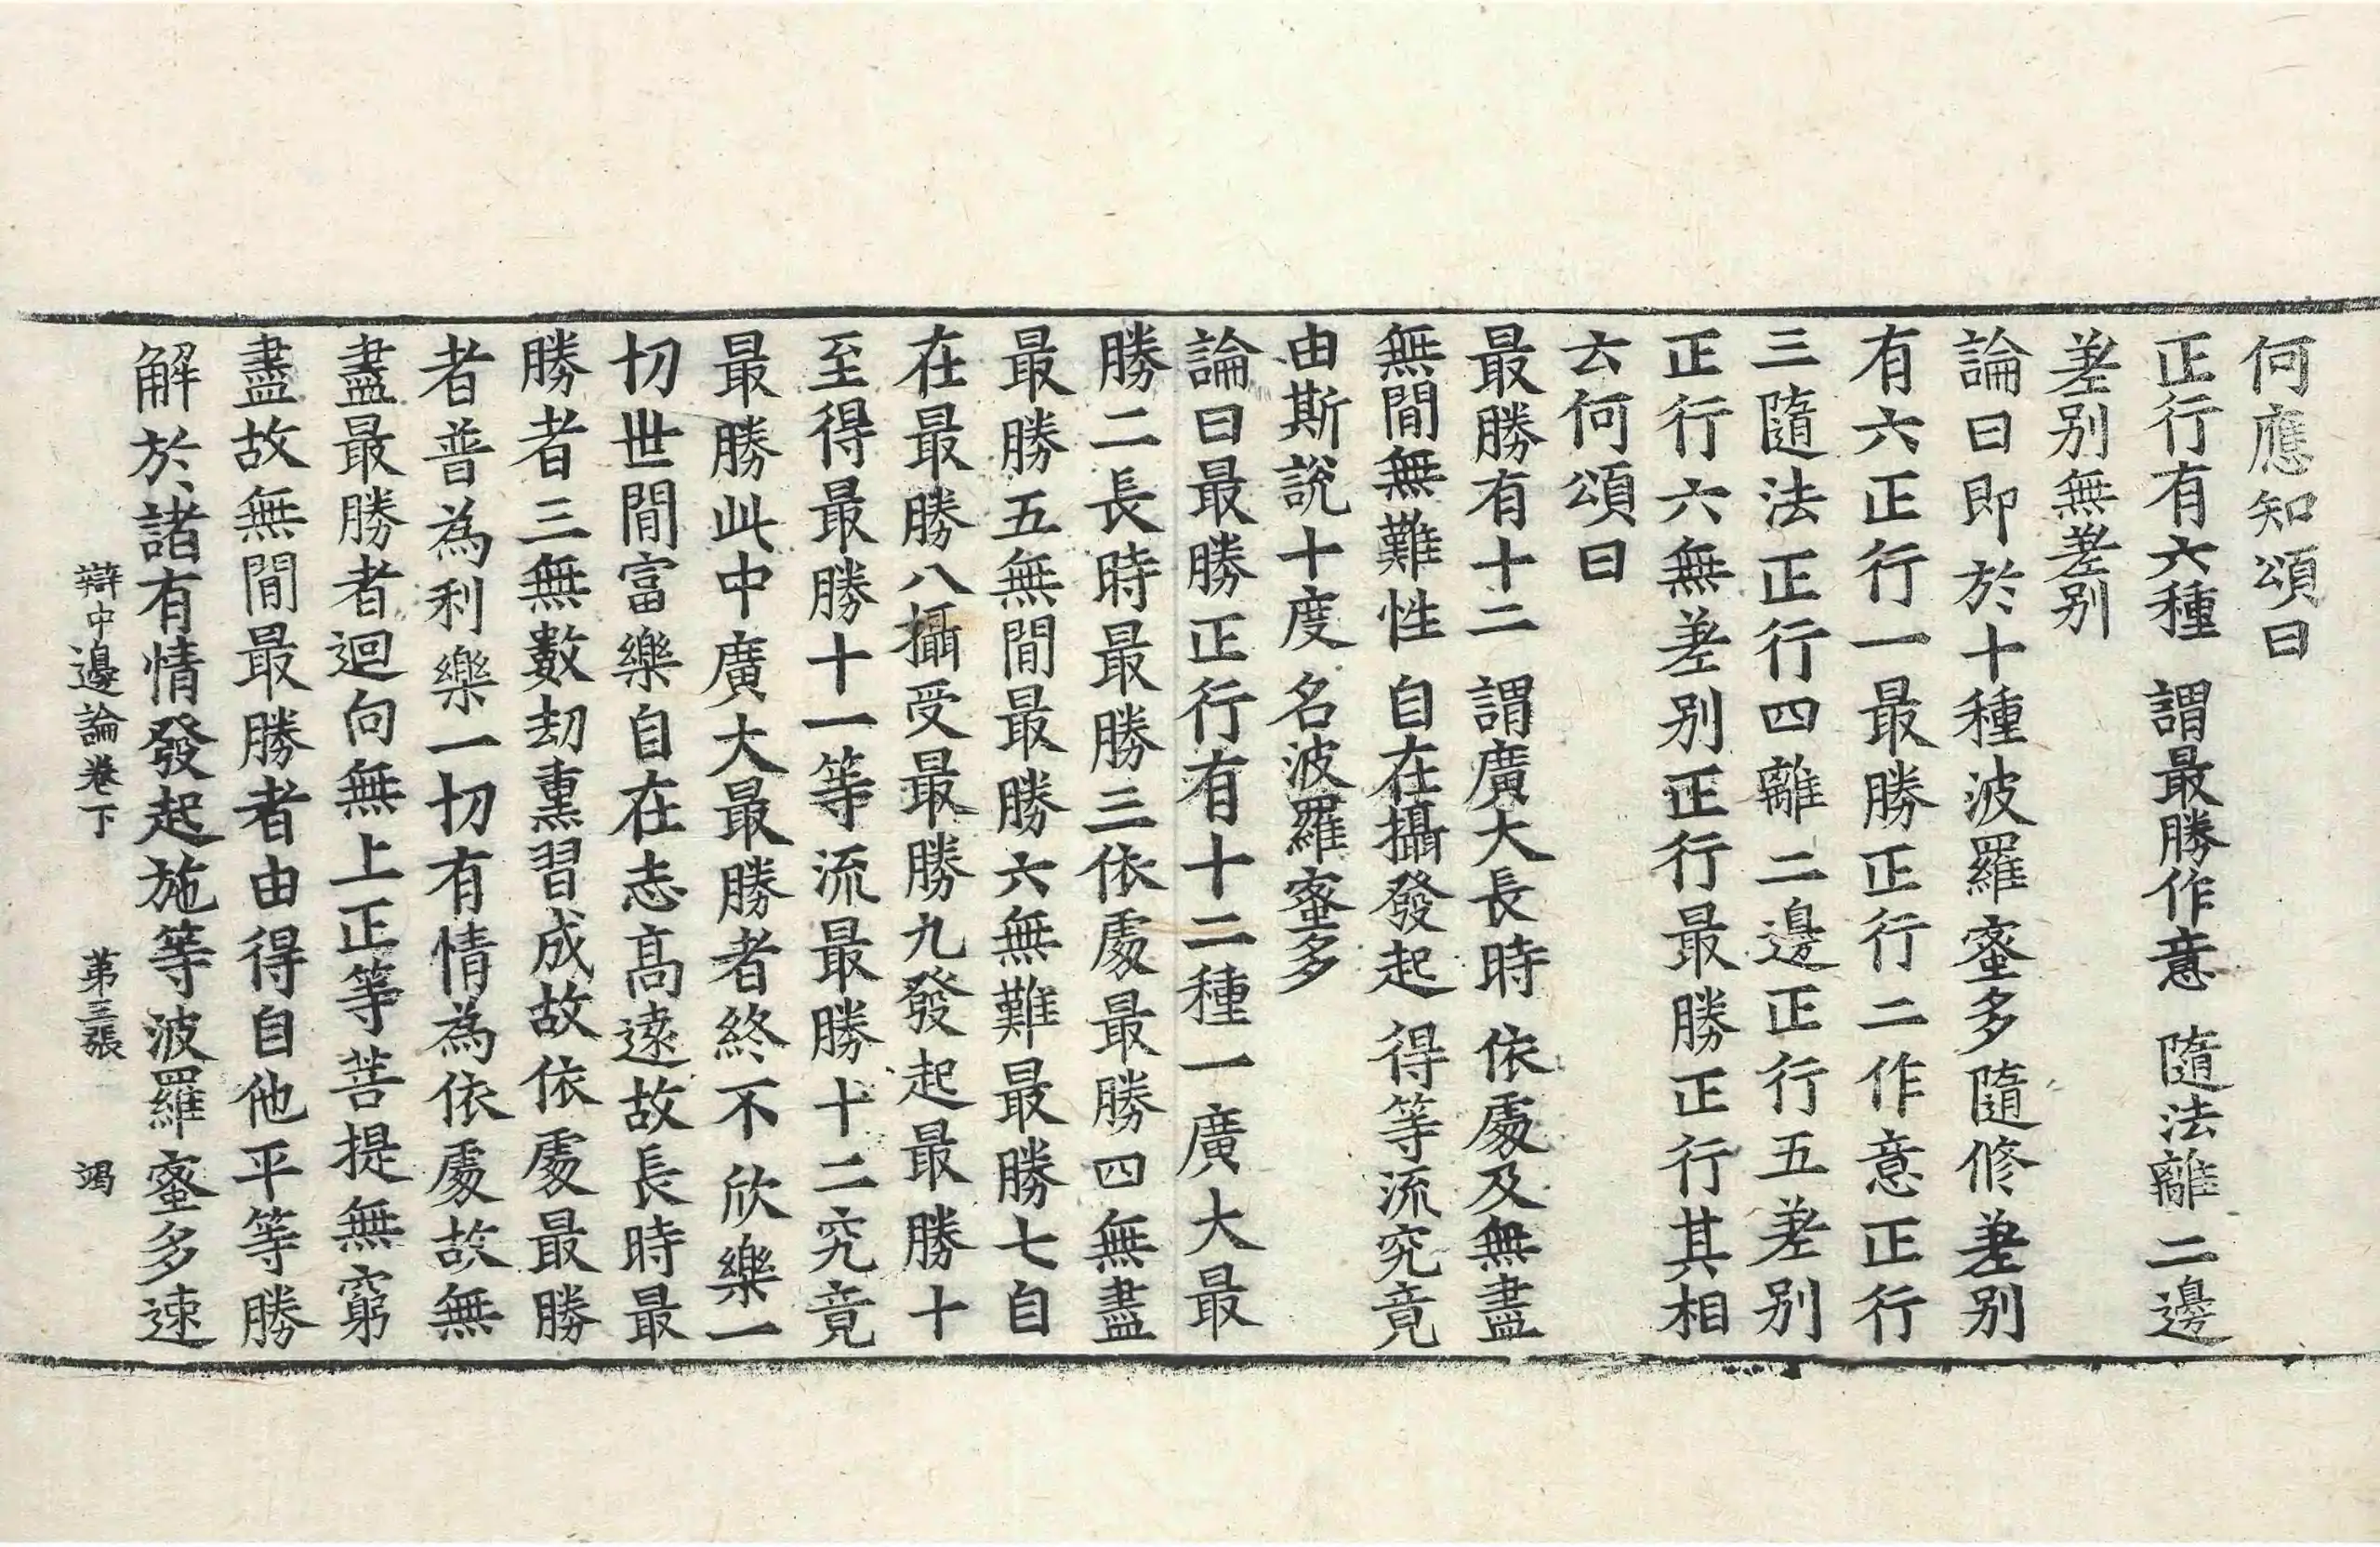 何應知頌曰
正行有六種　謂最勝作意　隨法離二邊
差别無差别
論曰即於十種波羅蜜多隨修差别
有六正行一最勝正行二作意正行
三隨法正行四離二邊正行五差别
正行六無差别正行最勝正行其相
云何頌曰
最勝有十二　謂廣大長時　依處及無盡
無間無難性　自在攝發起　得等流究竟
由斯說十度　名波羅蜜多
論曰最勝正行有十二種一廣大最
勝二長時最勝三依處最勝四無盡
最勝五無間最勝六無難最勝七自
在最勝八攝受最勝九發起最勝十
至得最勝十一等流最勝十二究竟
最勝此中廣大最勝者終不欣樂一
切世間富樂自在志高遠故長時最
勝者三無數劫熏習成故依處最勝
者普為利樂一切有情為依處故無
盡最勝者迴向無上正等菩提無窮
盡故無間最勝者由得自他平等勝
解於諸有情發起施等波羅蜜多速
辯中邊論卷下　第三張　竭